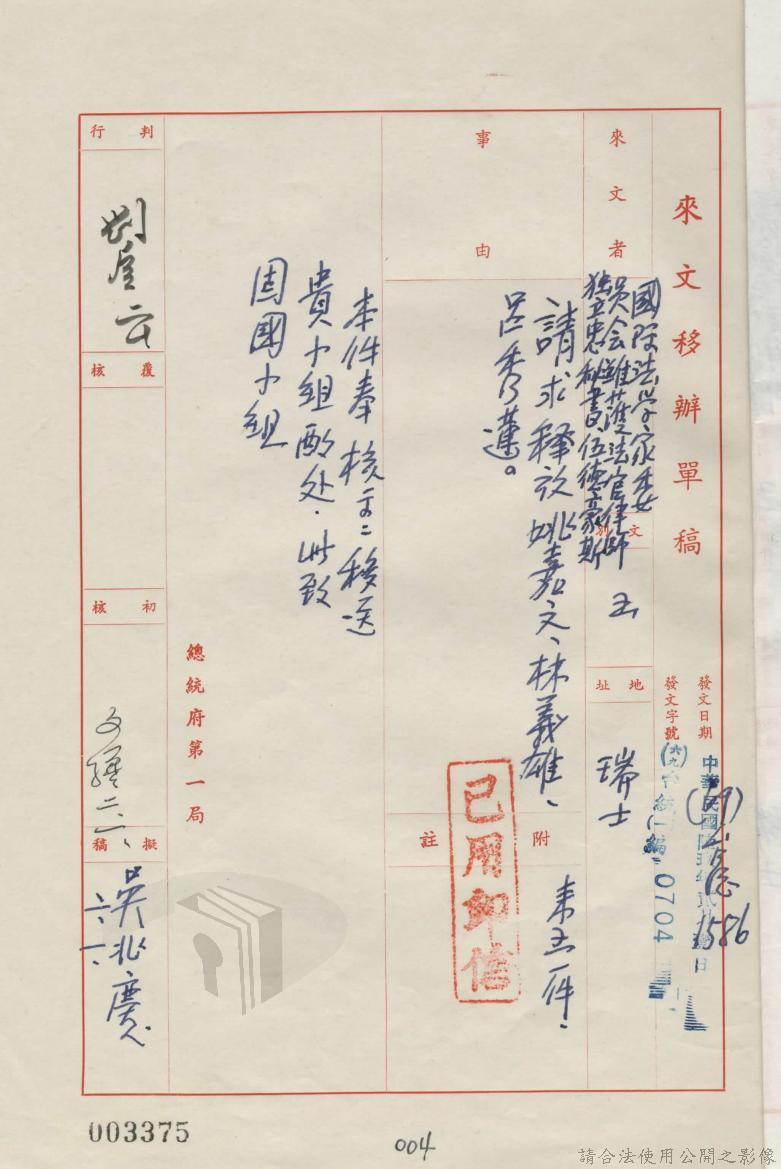 來文移辦單稿
發文日期
中華民國陸玖年貳月 日
發文字號
(六九)台統(一)編 0704
1586
來文者
國际法学家委
員会維護法官律師
独立忠秘書伍德豪斯
文別
地址
瑞士
事由
請求释放姚嘉文、林義雄、
呂秀蓮。
附註
來函一件.
已用印信
本件奉 核示:移送
貴小組酌处.此致
固國小組
總統府第一局
判行
覆核
初核
擬稿
吳兆慶
003375
004
請合法使用公開之影像